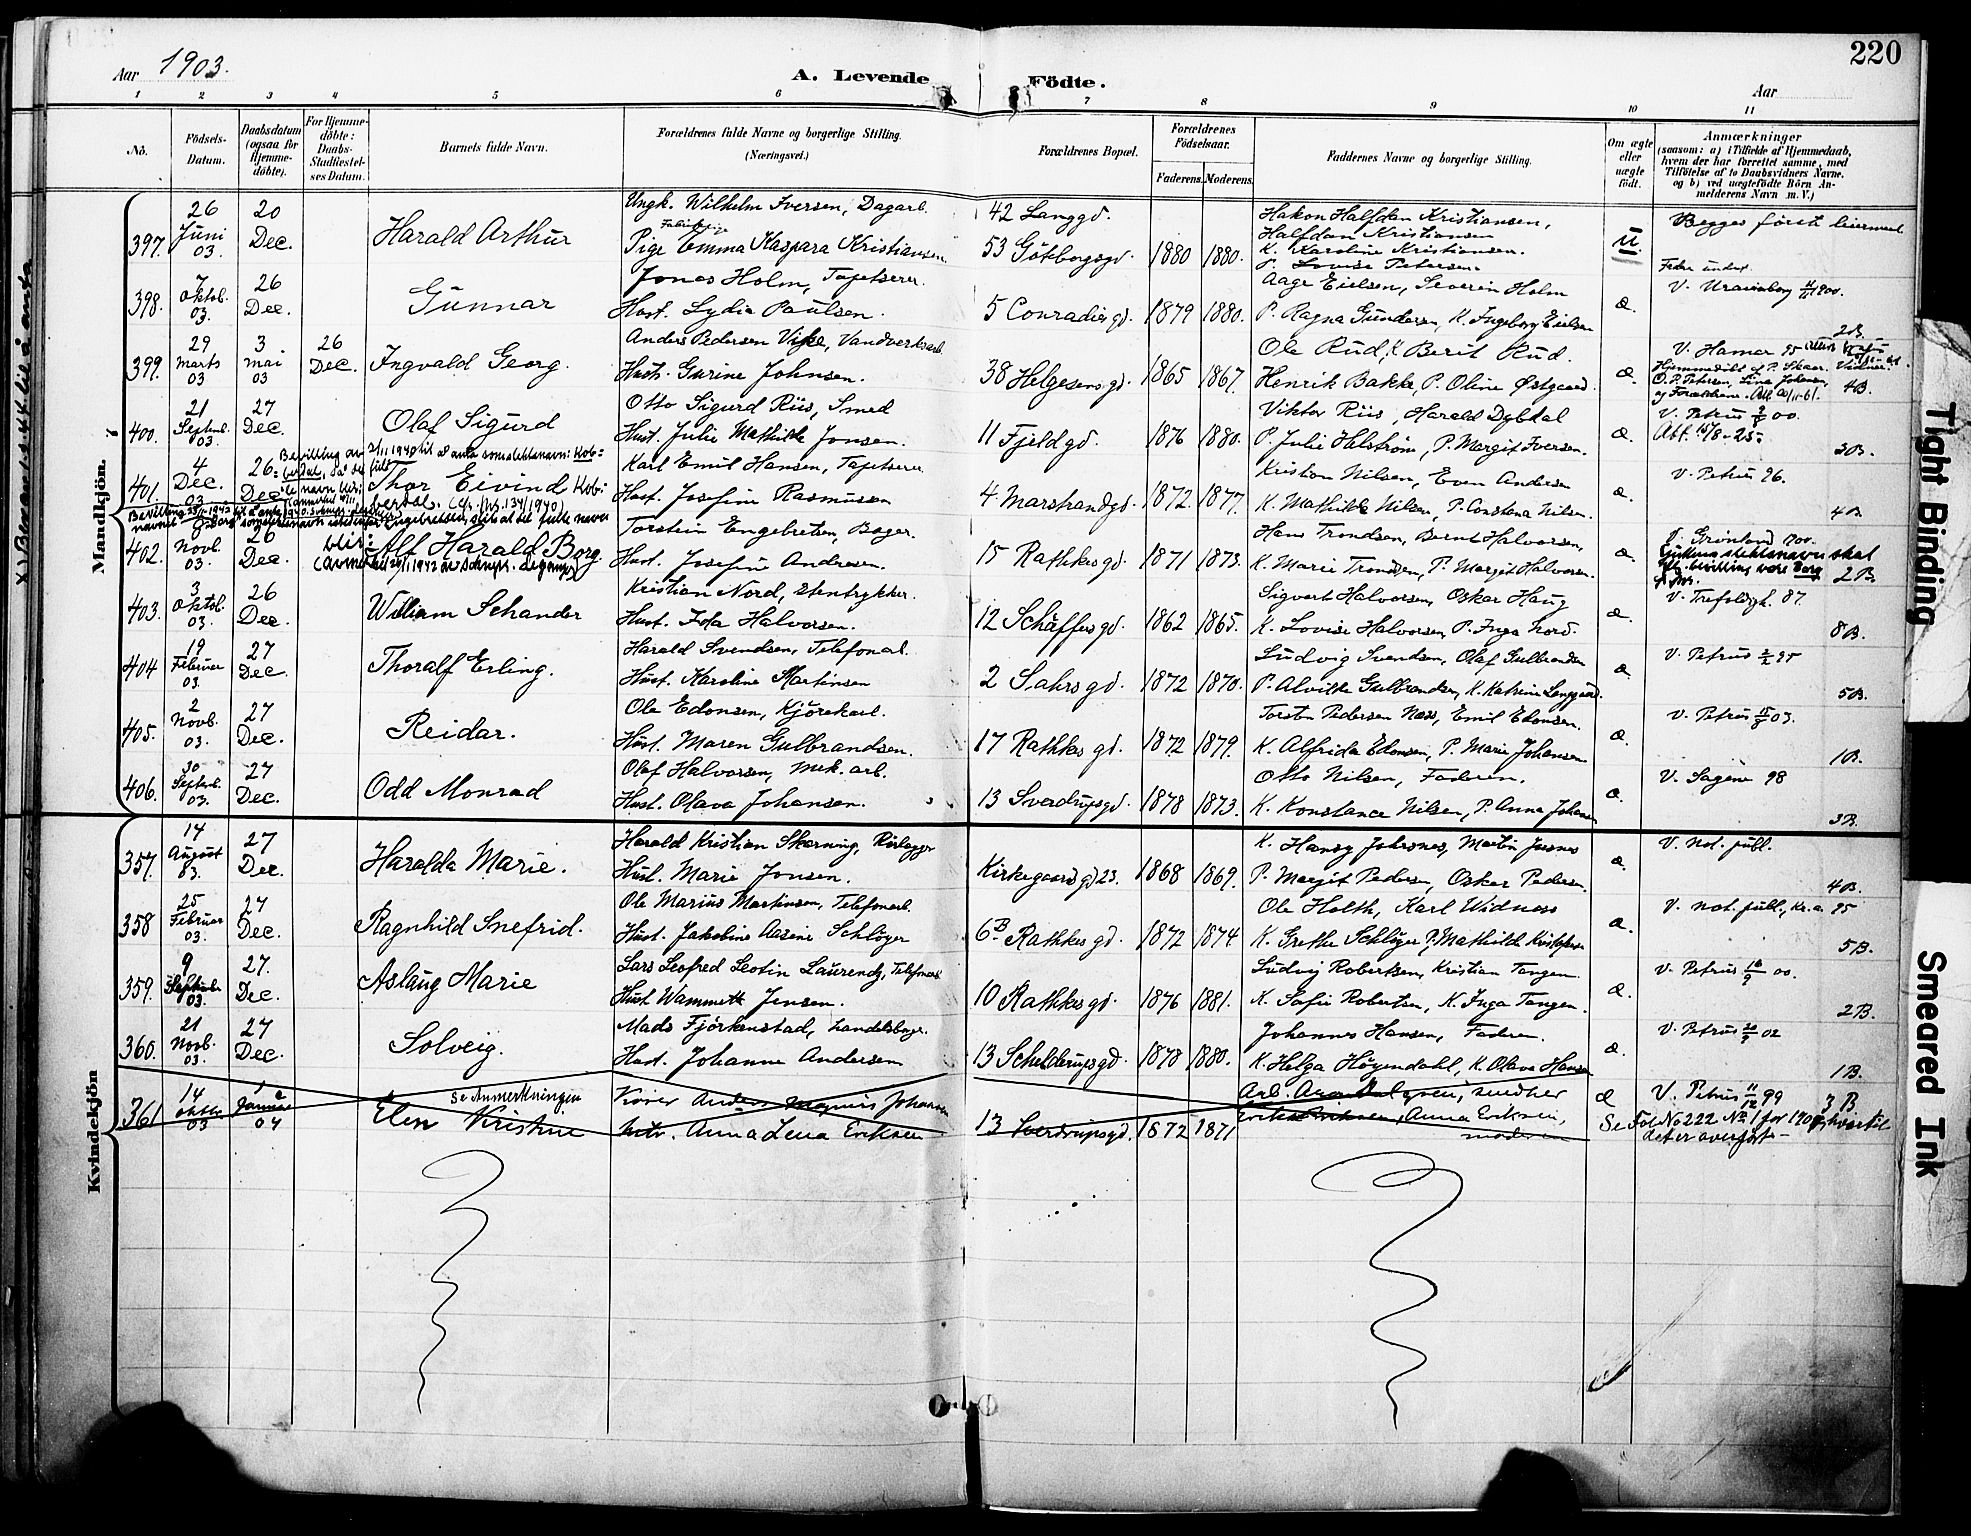 220
Aar 1903.
A. Levende Födte.
Aar
1 2 3 4 5 6 7 8 9 10 11
No.
Födsels-Datum.
Daabsdatum (ogsaa for Hjemme-döbte).
For Hjemme-döbte: Daabs-Stadfæstel-ses Datum.
Barnets fulde Navn.
Forældrenes fulde Navne og borgerlige Stilling. (Næringsvei.)
Forældrenes Bopæl.
Forældrenes Födselsaar.
Faderens. Moderens.
Faddernes Navne og borgerlige Stilling.
Om ægte eller uægte födt.
Anmærkninger (saasom: a) i Tilfælde af Hjemmedaab, hvem der har forrettet samme, med Tilföielse af to Daabsvidners Navne, og b) ved uægtefödte Börn An-melderens Navn m. V.)
Mandkjön.
397. 26 Juni 03. 20 Dec. Harald Arthur
Ungk. Wilhelm Iversen, Dagarb.
Pige Emma Kaspara Kristiansen
42 Langgd.
53 Göteborgsgd. 1880 1880.
Hakon Halfdan Kristiansen,
Halfdan Kristiansen
K. Karoline Kristiansen.
P. Lovise Petersen.
U. Begges först leiermaal
398. 7 Oktob. 03. 26 Dec. Gunnar
Jonas Holm, Tapetserer
Hust. Lydia Paulsen.
5 Conradiesgd. 1879 1880.
Aage Eielsen, Severin Holm
P. Ragna Gundersen, K. Ingeborg Eielsen
æ. V. Uranienborg 1900.
2B
399. 29 Marts 03 3 Mai 03 26 Dec. Ingvald Georg.
Anders Pedersen Vike, Vandverksarb.
Hust. Gurine Johnsen.
38 Helgesensgd. 1865 1867.
Ole Rud, K. Berit Rud.
Henrik Bakke, P. Oline Østgaard.
æ. V. Hamar 95
Hjemmedöbt af P. Skaar. Vidner:
O. P. Petersen, Lina Johansen
og Forældrene.
4B.
400. 21 Septemb. 03. 27 Dec. Olaf Sigurd
Otto Sigurd Riis, Smed
Hust. Julie Mathilde Jonsen.
11 Fjeldgd. 1876 1880.
Viktor Riis, Harald Dybdal
P. Julie Halström, P. Margit Iversen.
æ. V. Petrus 00.
Att. 15/8-25-
3B.
401. 4 Dec. 03 26 Dec. Thor Eivind
Bevilling av 2/11 1940 til at anta som slektsnavn: Kob-
berdal. (Jr. nr. 134/1940)
Karl Emil Hansen, Tapetserer
Hust. Josefine Rasmussen
4 Marstrandgd. 1872 1877.
Kristian Nilsen, Even Andersen
K. Mathilde Nilsen, P. Constana Nilsen.
æ. V. Petrus 96.
4B.
402. Novb. 03. 26 Dec. Alf Harald Borg.
Torstein Engebretsen, Bager.
Hust. Josefine Andresen.
15 Rathkesgd. 1871 1873.
Hans Trondsen, Bernt Halvorsen,
K. Marie Trondsen, P. Margit Halvorsen.
æ. V. Grönland 1900.
2B
403. 3 Oktob. 03. 26 Dec. William Schander
Kristian Nord, Stentrykker.
Hust. Ida Halvorsen.
12 Schäffersgd. 1862 1865.
Sigvart Halvorsen, Oskar Haug
K. Lovise Halvorsen, P. Inga Nord.
æ. V. Trefoldigh. 87.
8B.
404 19 Februar 03. 27 Dec. Thoralf Erling.
Harald Svendsen, Telefonarb.
Hust. Karoline Martinsen
2 Sarsgd. 1872 1870.
Ludvig Svendsen, Olaf Gulbrandsen
P. Alvilde Gulbrandsen, K. Katrine Langgaard.
æ V. Petrus 95
5B.
405. 2 Novb. 03. 27 Dec. Reidar.
Ole Edonsen, Kjörekarl.
Hust. Maren Gulbrandsen.
17 Rathkesgd. 1872 1879.
Torsten Pedersen Næss, Emil Edonsen.
K. Alfrida Edonsen, P. Marie Johansen
æ. V. Petrus 03.
1B.
406. 30 Septemb. 03. 27 Dec. Odd Monrad
Olaf Halvorsen, Mek. arb.
Hust. Olava Johansen.
13 Sverdrupsgd. 1878 1873.
Otto Nilsen, Faderen.
K. Konstance Nilsen, P. Anna Johansen
æ. V. Sagene 98
3B.
Kvindekjön
357. 14 August 03. 27 Dec. Haralda Marie.
Harald Kristian Skarning, Rörlægger
Hust. Marie Jonsen.
Kirkegaardsgd 23. 1868 1869.
P. Margit Pedersen, Oskar Pedersen.
æ. V. Not. publ.
4B.
358 25 Februar 03. 27 Dec. Ragnhild Snefrid.
Ole Marius Martinsen, Telefonarb.
Hust. Jakobine Aasine Schlöger
6B Rathkesgd. 1872 1874
Ole Holth, Karl Widness
K. Grethe Schlöger P. Mathilde Kristophersen
æ. V. Not. publ., Kr.a. 95
5B.
359. 9 Septemb. 03. 27. Dec. Aslaug Marie
Hust. Wammette Jensen.
10 Rathkesgd. 1876 1881.
Ludvig Robertsen, Kristian Tangen
K. Sofie Robertsen, K. Inga Tangen.
æ. V. Petrus 00.
2B.
360. 21 Novb. 03. 27 Dec. Solveig.
Mads Fjörkenstad, Handelsbogh.
Hust. Johanne Andersen
13 Schelderupsgd. 1878 1880.
Johannes Hansen, Faderen.
K. Helga Höyendahl, K. Olava Hansen
æ. V. Petrus 02
1B.
361 14 Oktbr 03 1 Januar 04 Elen Kristine
Se Anmerkningen
Kjörer Anders Magnus Johansen
Hstr. Anna Lena Eriksen
13 Sverdrupsgd. 1872 1871
Anna Eriksen,
moderen
æ V. Petrus 11/12 99 3B
Se Fol No 222 No 1 for 1904, hvortil
det er overfört-
Tight Binding
Smeared Ink